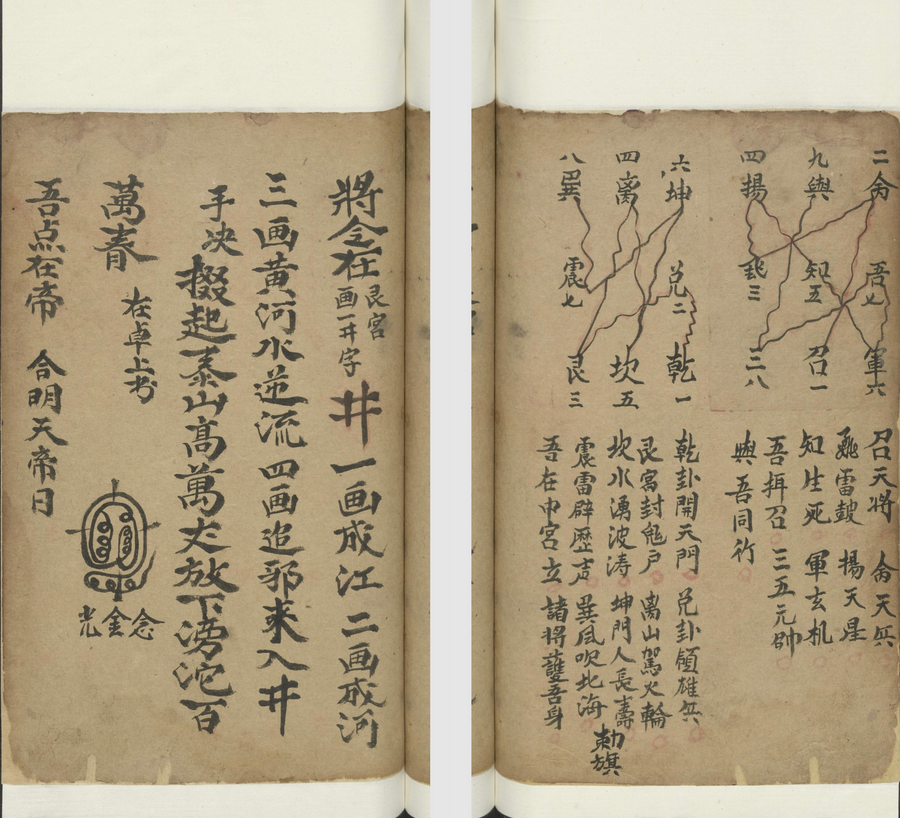 二侖 吾七 軍六
九與 知五 召一
四揚 三 二八
六坤 兑二 乾一
四离 坎五
八巽 震七 艮三
召天將 侖天兵
雷鼓 揚天星
知生死 軍玄机
吾揖召 三五元帥
與吾同行
乾卦開天門 兑卦領雄兵
艮宮封鬼户 离山駕火輪
坎水湧波涛 坤門人長壽
震雷辟歷声 巽風吹北海
勅旗
吾在中宮立 諸將護吾身
將令在 艮宮画一井字 井 一画成江 二画成河
三画黄河水逆流 四画追邪來入井
手决 掇起泰山高萬丈放下滂沱百
萬春 在卓上书
念金光
吾点在帝 合明天帝日